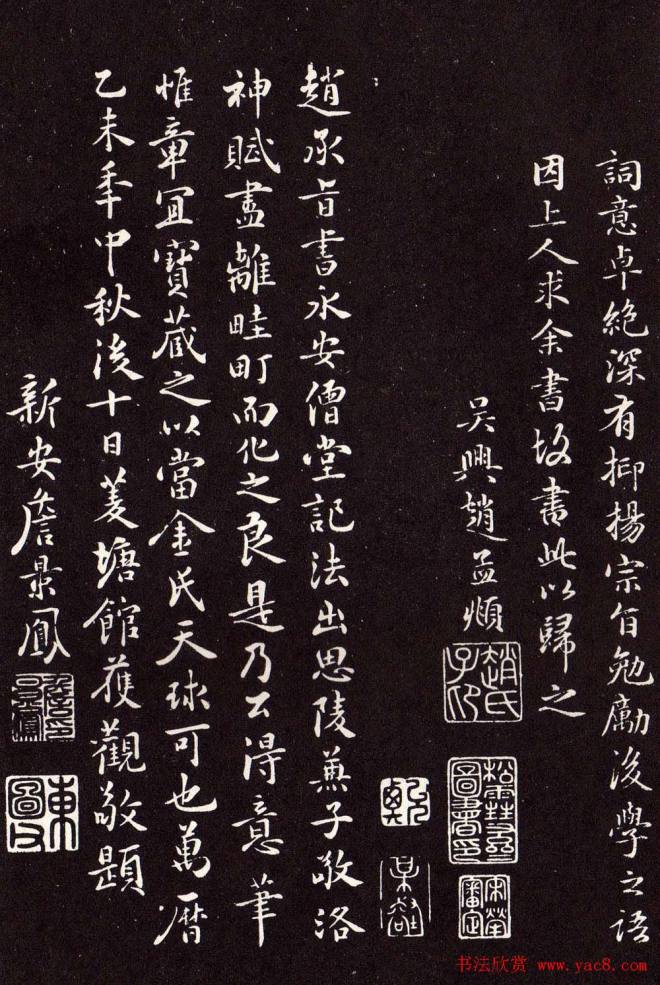 詞意卓絕深有抑揚宗旨勉勵後學之語
因上人求余書故書此以歸之
吳興趙孟頫
趙氏子印
宋犖審定
趙承旨書永安僧堂記法出思陵兼子敬洛
神賦盡離畦町而化之良是乃公得意筆
惟章宜寶藏之以當金氏天球可也萬曆
乙未年中秋後十日菱塘館獲觀敬題
新安詹景鳳
東圖父
书法欣赏 www.yac8.com